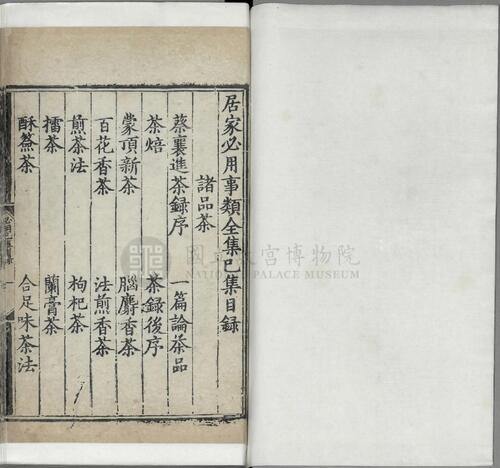 居家必用事類全集巳集目録
諸品茶
蔡襄進茶録序 一篇論茶品
茶焙 茶録後序
蒙頂新茶 腦麝香茶
百花香茶 法煎香茶
煎茶法 枸杞茶
擂茶 蘭膏茶
酥簽茶 合足味茶法
國立故宮博物院
NATIONAL PALACE MUSEUM